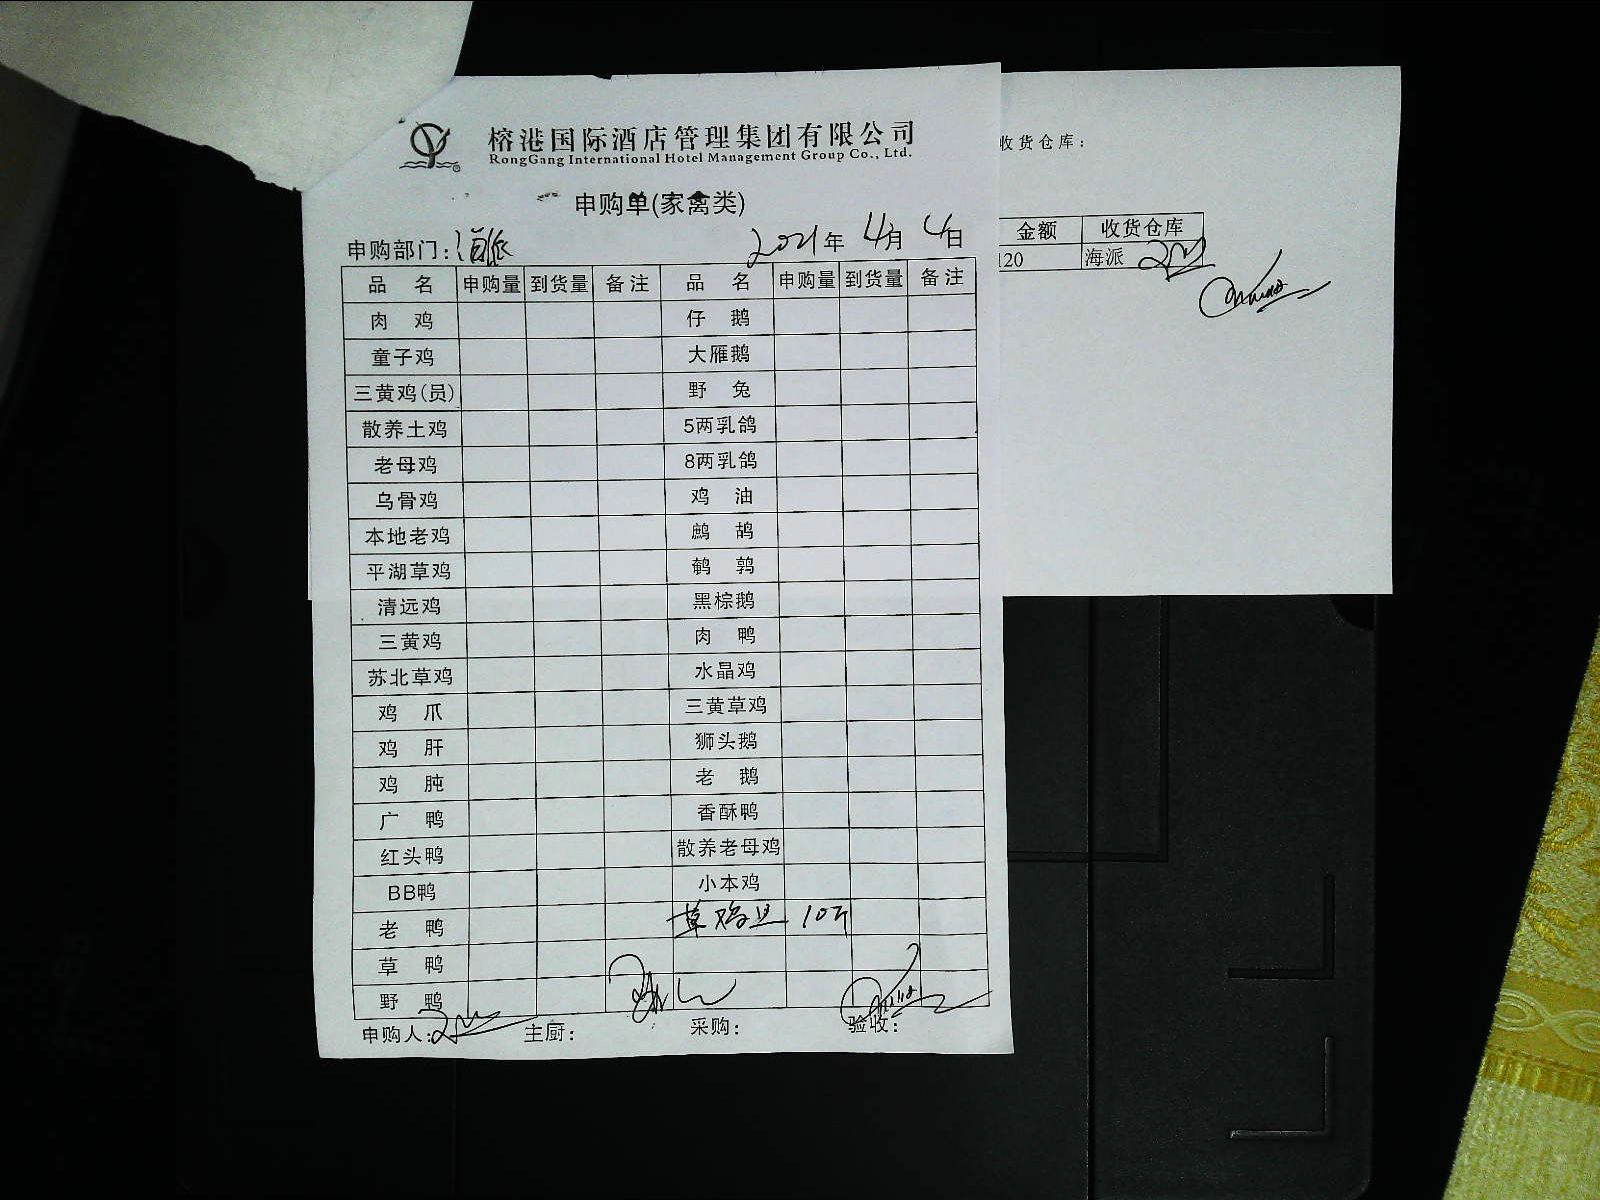 榕港国际酒店管理集团有限公司
RongGang International Hotel Management Group Co., Ltd.
申购单(家禽类)
申购部门:海派 2021年 4月 4日
品 名 申购量 到货量 备注 品 名 申购量 到货量 备注
肉 鸡 仔 鹅
童子鸡 大雁鹅
三黄鸡(员) 野 兔
散养土鸡 5两乳鸽
老母鸡 8两乳鸽
乌骨鸡 鸡 油
本地老鸡 鹧 鸪
平湖草鸡 鹌 鹑
清远鸡 黑棕鹅
三黄鸡 肉 鸭
苏北草鸡 水晶鸡
鸡 爪 三黄草鸡
鸡 肝 狮头鹅
鸡 肫 老 鹅
广 鸭 香酥鸭
红头鸭 散养老母鸡
BB鸭 小本鸡
老 鸭 草鸡旦 10斤
草 鸭
野 鸭
申购人: 主厨: 采购: 验收:
收货仓库:
金额 收货仓库
120 海派